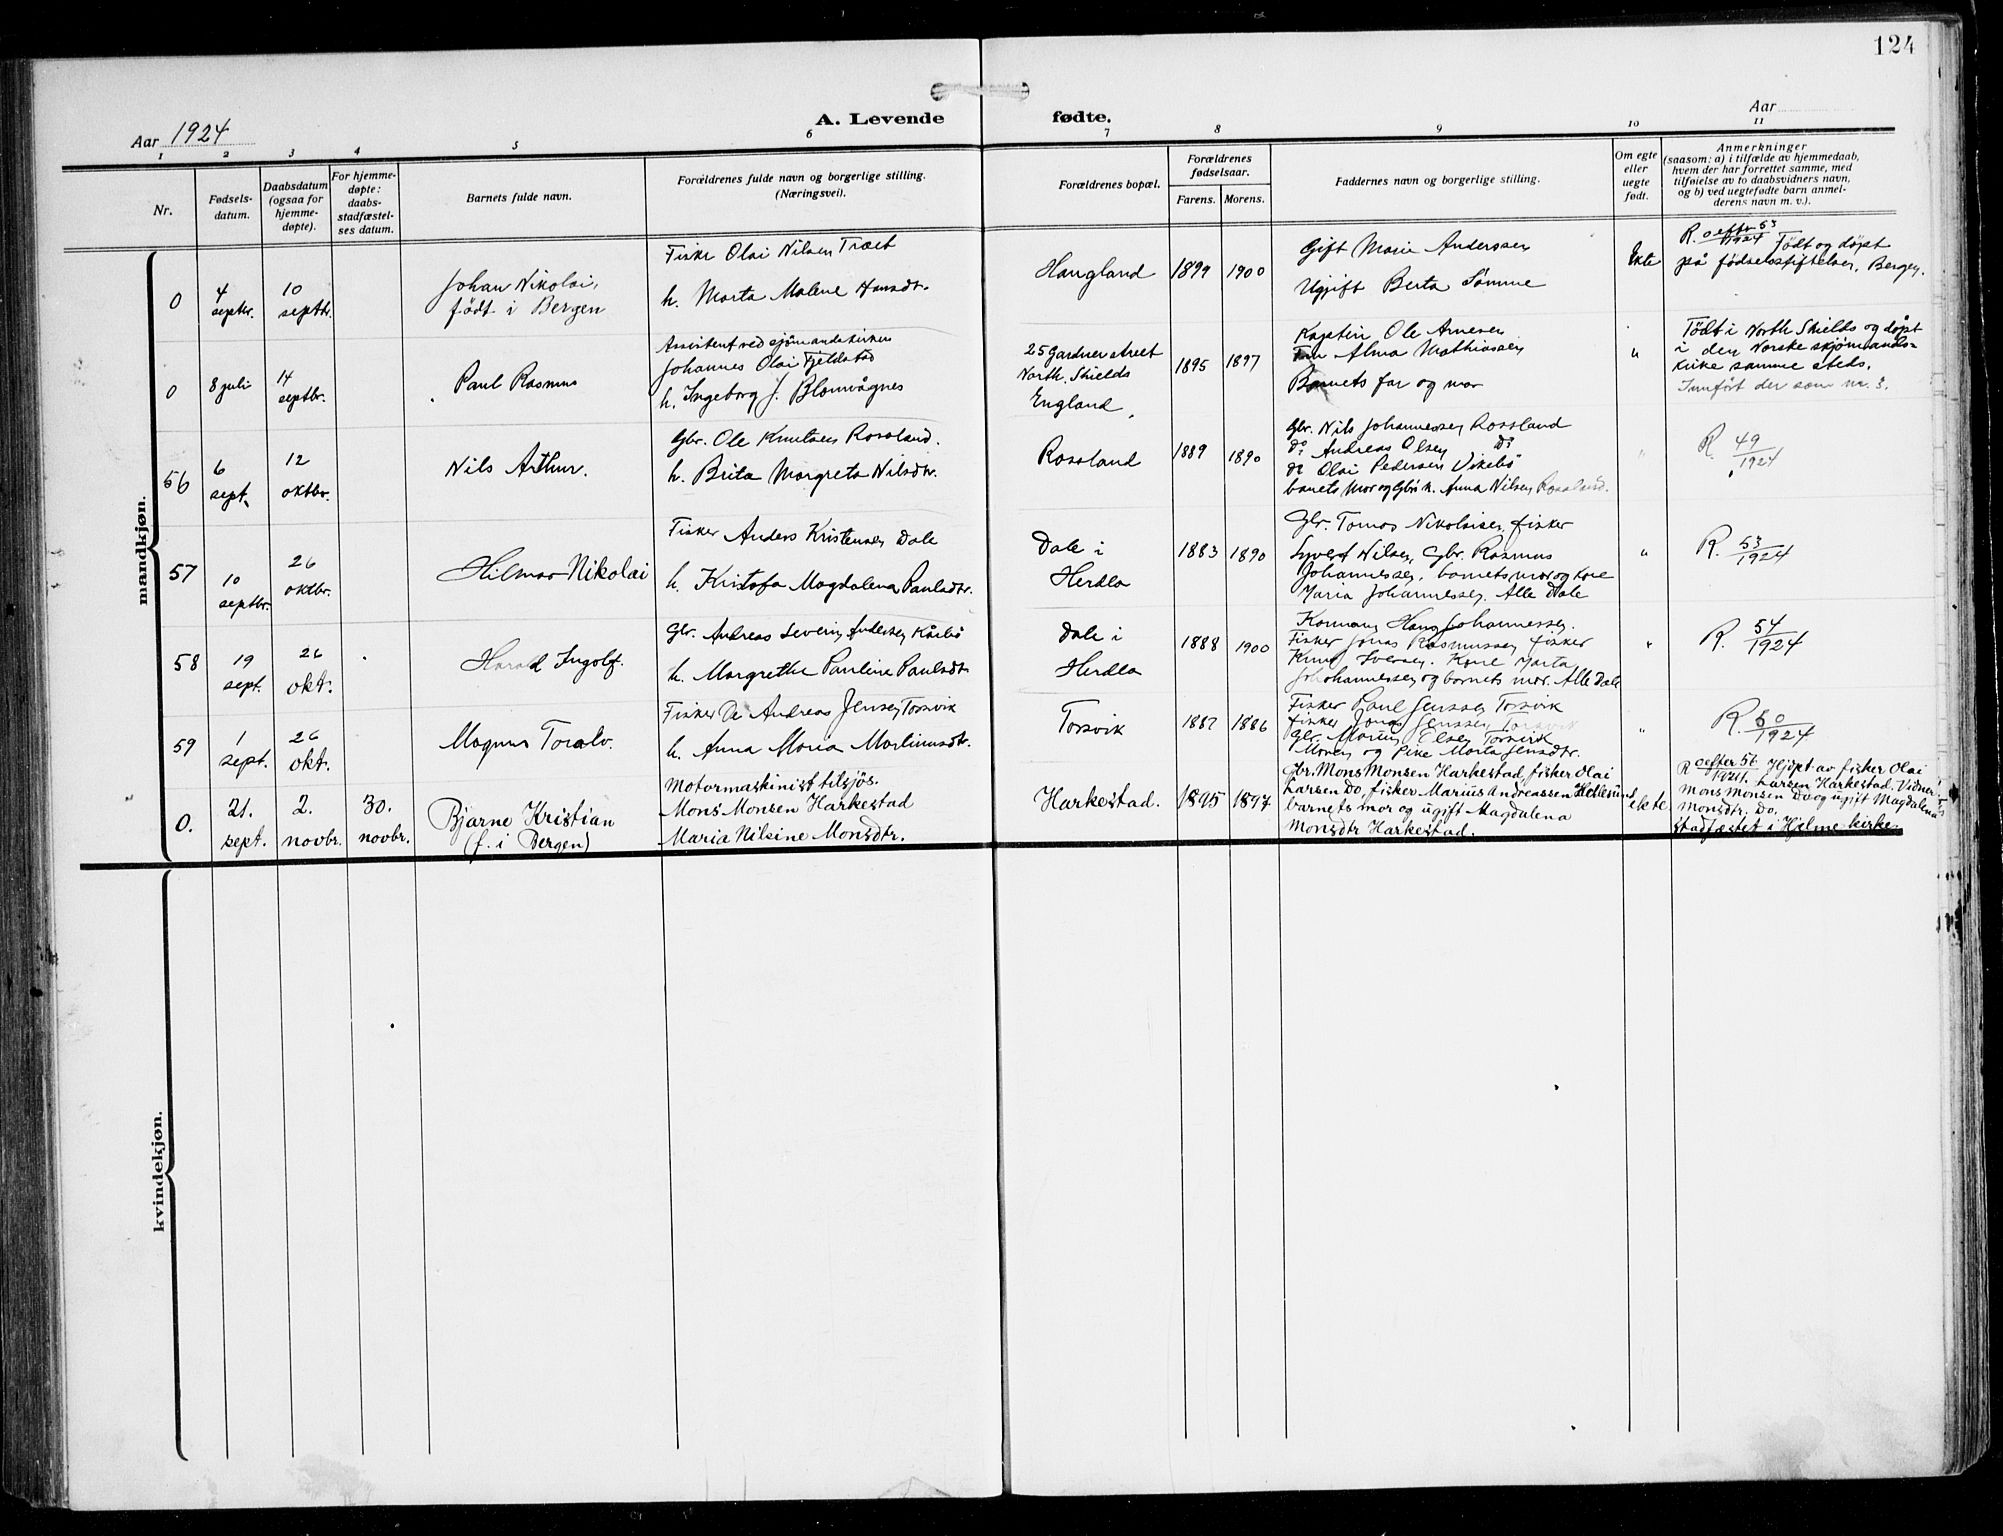 124
Aar 1924
A. Levende fødte.
Aar
1 2 3 4 5 6 7 8 9 10 11
Nr.
Fødsels-
datum.
Daabsdatum
(ogsaa for
hjemme-
døpte).
For hjemme-
døpte:
daabs-
stadfæstel-
ses datum.
Barnets fulde navn.
Forældrenes fulde navn og borgerlige stilling.
(Næringsvei).
Forældrenes bopæl.
Forældrenes
fødselsaar.
Farens. Morens.
Faddernes navn og borgerlige stilling.
Om egte
eller
uegte
født.
Anmerkninger
(saasom: a) i tilfælde av hjemmedaab,
hvem der har forrettet samme, med
tilføielse av to daabsvidners navn,
og b) ved uegtefødte barn anmel-
derens navn m. v.).
mandkjøn.
0
4
septbr.
10
septbr.
Johan Nikolai,
født i Bergen
Fisker Olai Nilsen Træet
h. Marta Malene Hansdtr.
Haugland
1899 1900
Gift Marie Anderssen
Ugift Berta Sømme
Ekte
R. o efter 53/1924 Født og døpt
på fødselsstiftelsen, Bergen.
0
8 juli
14
septbr.
Paul Rasmus
Assistent ved sjømandskirken
Johannes Olai Fjeldstad
h. Ingeborg J. Blomvågnes
25 Gardner street
North Shields
England
1895 1897
Kaptein Ole Arnesen
Fru Alma Mathiassen
Barnets far og mor
"
Født i North Shields og døpt
i den Norske skjømands-
kirke samme steds.
Innført der som nr. 3.
56
6
sept.
12
oktbr.
Nils Arthur.
Gbr. Ole Knutsen Rossland.
h. Brita Margreta Nilsdtr.
Rossland
1889 1890
Gbr. Nils Johannessen Rossland
Do Andreas Olsen Do
Do Olai Pedersen Vikebø
barnets mor og Gbr's h. Anna Nilsen Rossland.
"
R. 49/1924
57
10
septbr.
26
oktbr.
Hilmar Nikolai
Fisker Anders Kristensen Dale
h. Kristofa Magdalena Paulsdtr.
Dale i
Herdla
1883 1890
Gbr. Tomas Nikolaisen, fisker
Syvert Nilsen, Gbr. Rasmus
Johannessen, barnets mor og kone
Maria Johannessen. Alle Dale
"
R. 53/1924
58
19
sept.
26
okt.
Harald Ingolf.
Gbr. Andreas Severin Andersen Kårbø
h. Margrethe Pauline Paulsdtr
Dale i
Herdla
1888 1900
Hans Johannessen.
Fisker Jonas Rasmussen, fisker
Knut Iversen. Kone Marta
Johannessen og barnets mor. Alle Dale
"
R. 54/1924
59
1
sept.
26
okt.
Magnus Toralv.
Fisker Andreas Jensen Torsvik
h. Anna Maria Martinusdtr.
Torsvik
1887 1886
Fisker Paul Jenssen Torsvik
fisker Jonas Jenssen Torsvik
Gbr. Martin Elsen Torsvik
Moren og Pike Marta Jensdtr.
"
R 50/1924
0.
21.
sept.
2.
novbr.
30.
novbr.
Bjarne Kristian
(f. i Bergen)
Motormaskinist tilsjøs.
Mons Monsen Harkestad
Maria Nilsine Monsdtr.
Harkestad.
1895 1897
Gbr. Mons Monsen Harkestad, fisker Olai
Larsen Do, fisker Marius Andreassen Hellesund
barnets mor og ugift Magdalena
Monsdtr Harkestad.
ekte
R o efter 56/1924. Hjdøpt av fisker Olai
Larsen Harkestad. Vidner:
Mons Monsen Do og ugift Magdalena
Monsdtr. Do.
Stadfæstet i Hjelme kirke.
kvindekjøn.